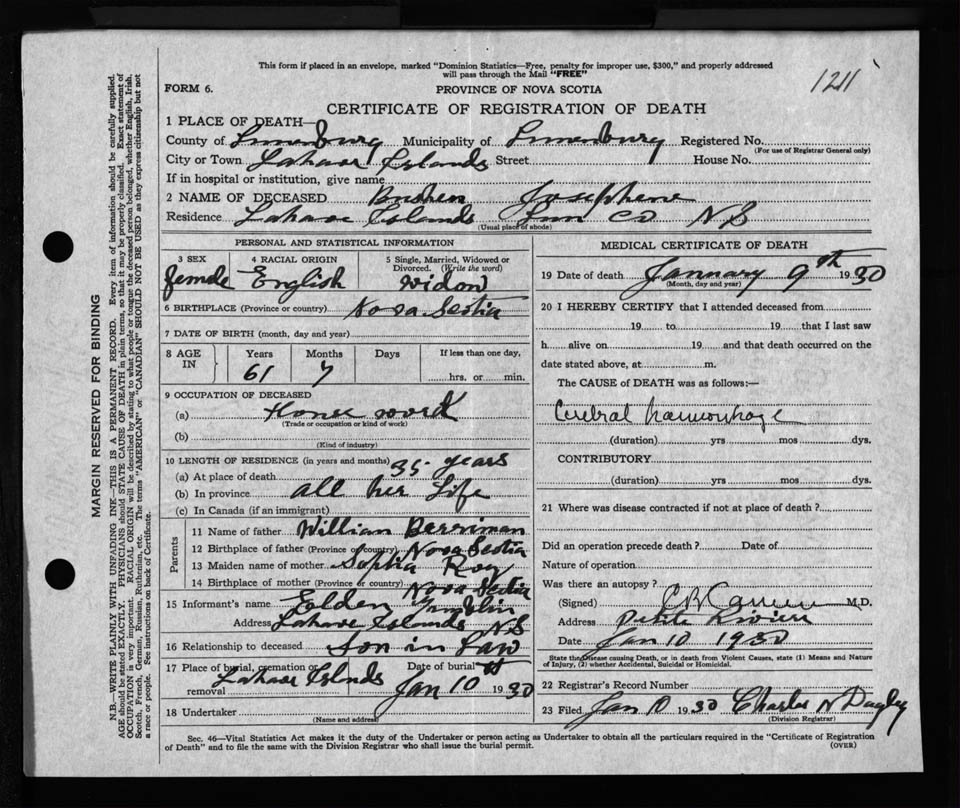 This form if placed in an envelope, marked "Dominion Statistics—Free, penalty for improper use, $300," and properly addressed
will pass through the Mail "FREE"
1211
FORM 6.
PROVINCE OF NOVA SCOTIA
CERTIFICATE OF REGISTRATION OF DEATH
1 PLACE OF DEATH—
County of Lunenburg Municipality of Lunenburg Registered No.
(For use of Registrar General only)
City or Town Lahave Islands Street House No.
If in hospital or institution, give name
2 NAME OF DECEASED Josephene
Residence Lahave Islands Lun Co NS
(Usual place of abode)
PERSONAL AND STATISTICAL INFORMATION
3 SEX
female
4 RACIAL ORIGIN
English
5 Single, Married, Widowed or
Divorced. (Write the word)
widow
6 BIRTHPLACE (Province or country) Nova Scotia
7 DATE OF BIRTH (month, day and year)
8 AGE
IN
Years
61
Months
7
Days
If less than one day,
hrs. or min.
9 OCCUPATION OF DECEASED
(a) House work
(Trade or occupation or kind of work)
(b)
(Kind of industry)
10 LENGTH OF RESIDENCE (in years and months)
(a) At place of death 35 years
(b) In province all her Life
(c) In Canada (if an immigrant)
Parents
11 Name of father William Berriman
12 Birthplace of father (Province or country) Nova Scotia
13 Maiden name of mother Sophia Roy
14 Birthplace of mother (Province or country) Nova Scotia
15 Informant's name Elden
Address Lahave Islands NS
16 Relationship to deceased Son in Law
17 Place of burial, cremation or
removal Lahave Islands
Date of burial
Jan 10th 1930
18 Undertaker
(Name and address)
MEDICAL CERTIFICATE OF DEATH
19 Date of death January 9th 1930
(Month, day and year)
20 I HEREBY CERTIFY that I attended deceased from
19 to 19 that I last saw
h alive on 19 and that death occurred on the
date stated above, at m.
The CAUSE of DEATH was as follows:—
Cerebral haemorrhage
(duration) yrs mos dys.
CONTRIBUTORY
(duration) yrs mos dys.
21 Where was disease contracted if not at place of death?
Did an operation precede death? Date of
Nature of operation
Was there an autopsy?
(Signed) M.D.
Address Petite Riviere
Date Jan 10 1930
State the Disease causing Death, or in death from Violent Causes, state (1) Means and Nature
of Injury, (2) whether Accidental, Suicidal or Homicidal.
22 Registrar's Record Number
23 Filed Jan 10 1930 Charles N Dagley
(Division Registrar)
Sec. 46—Vital Statistics Act makes it the duty of the Undertaker or person acting as Undertaker to obtain all the particulars required in the "Certificate of Registration
of Death" and to file the same with the Division Registrar who shall issue the burial permit.
(OVER)
MARGIN RESERVED FOR BINDING
N.B.—WRITE PLAINLY WITH UNFADING INK—THIS IS A PERMANENT RECORD. Every item of information should be carefully supplied.
AGE should be stated EXACTLY. PHYSICIANS should STATE CAUSE OF DEATH in plain terms, so that it may be properly classified. Exact statement of
OCCUPATION is very important. RACIAL ORIGIN will be described by stating to what people or tongue the deceased person belonged, whether English, Irish,
Scotch, French, German, Russian, Ruthenian, etc. The terms "AMERICAN" or "CANADIAN" SHOULD NOT BE USED as they express citizenship but not
a race or people. See instructions on back of Certificate.